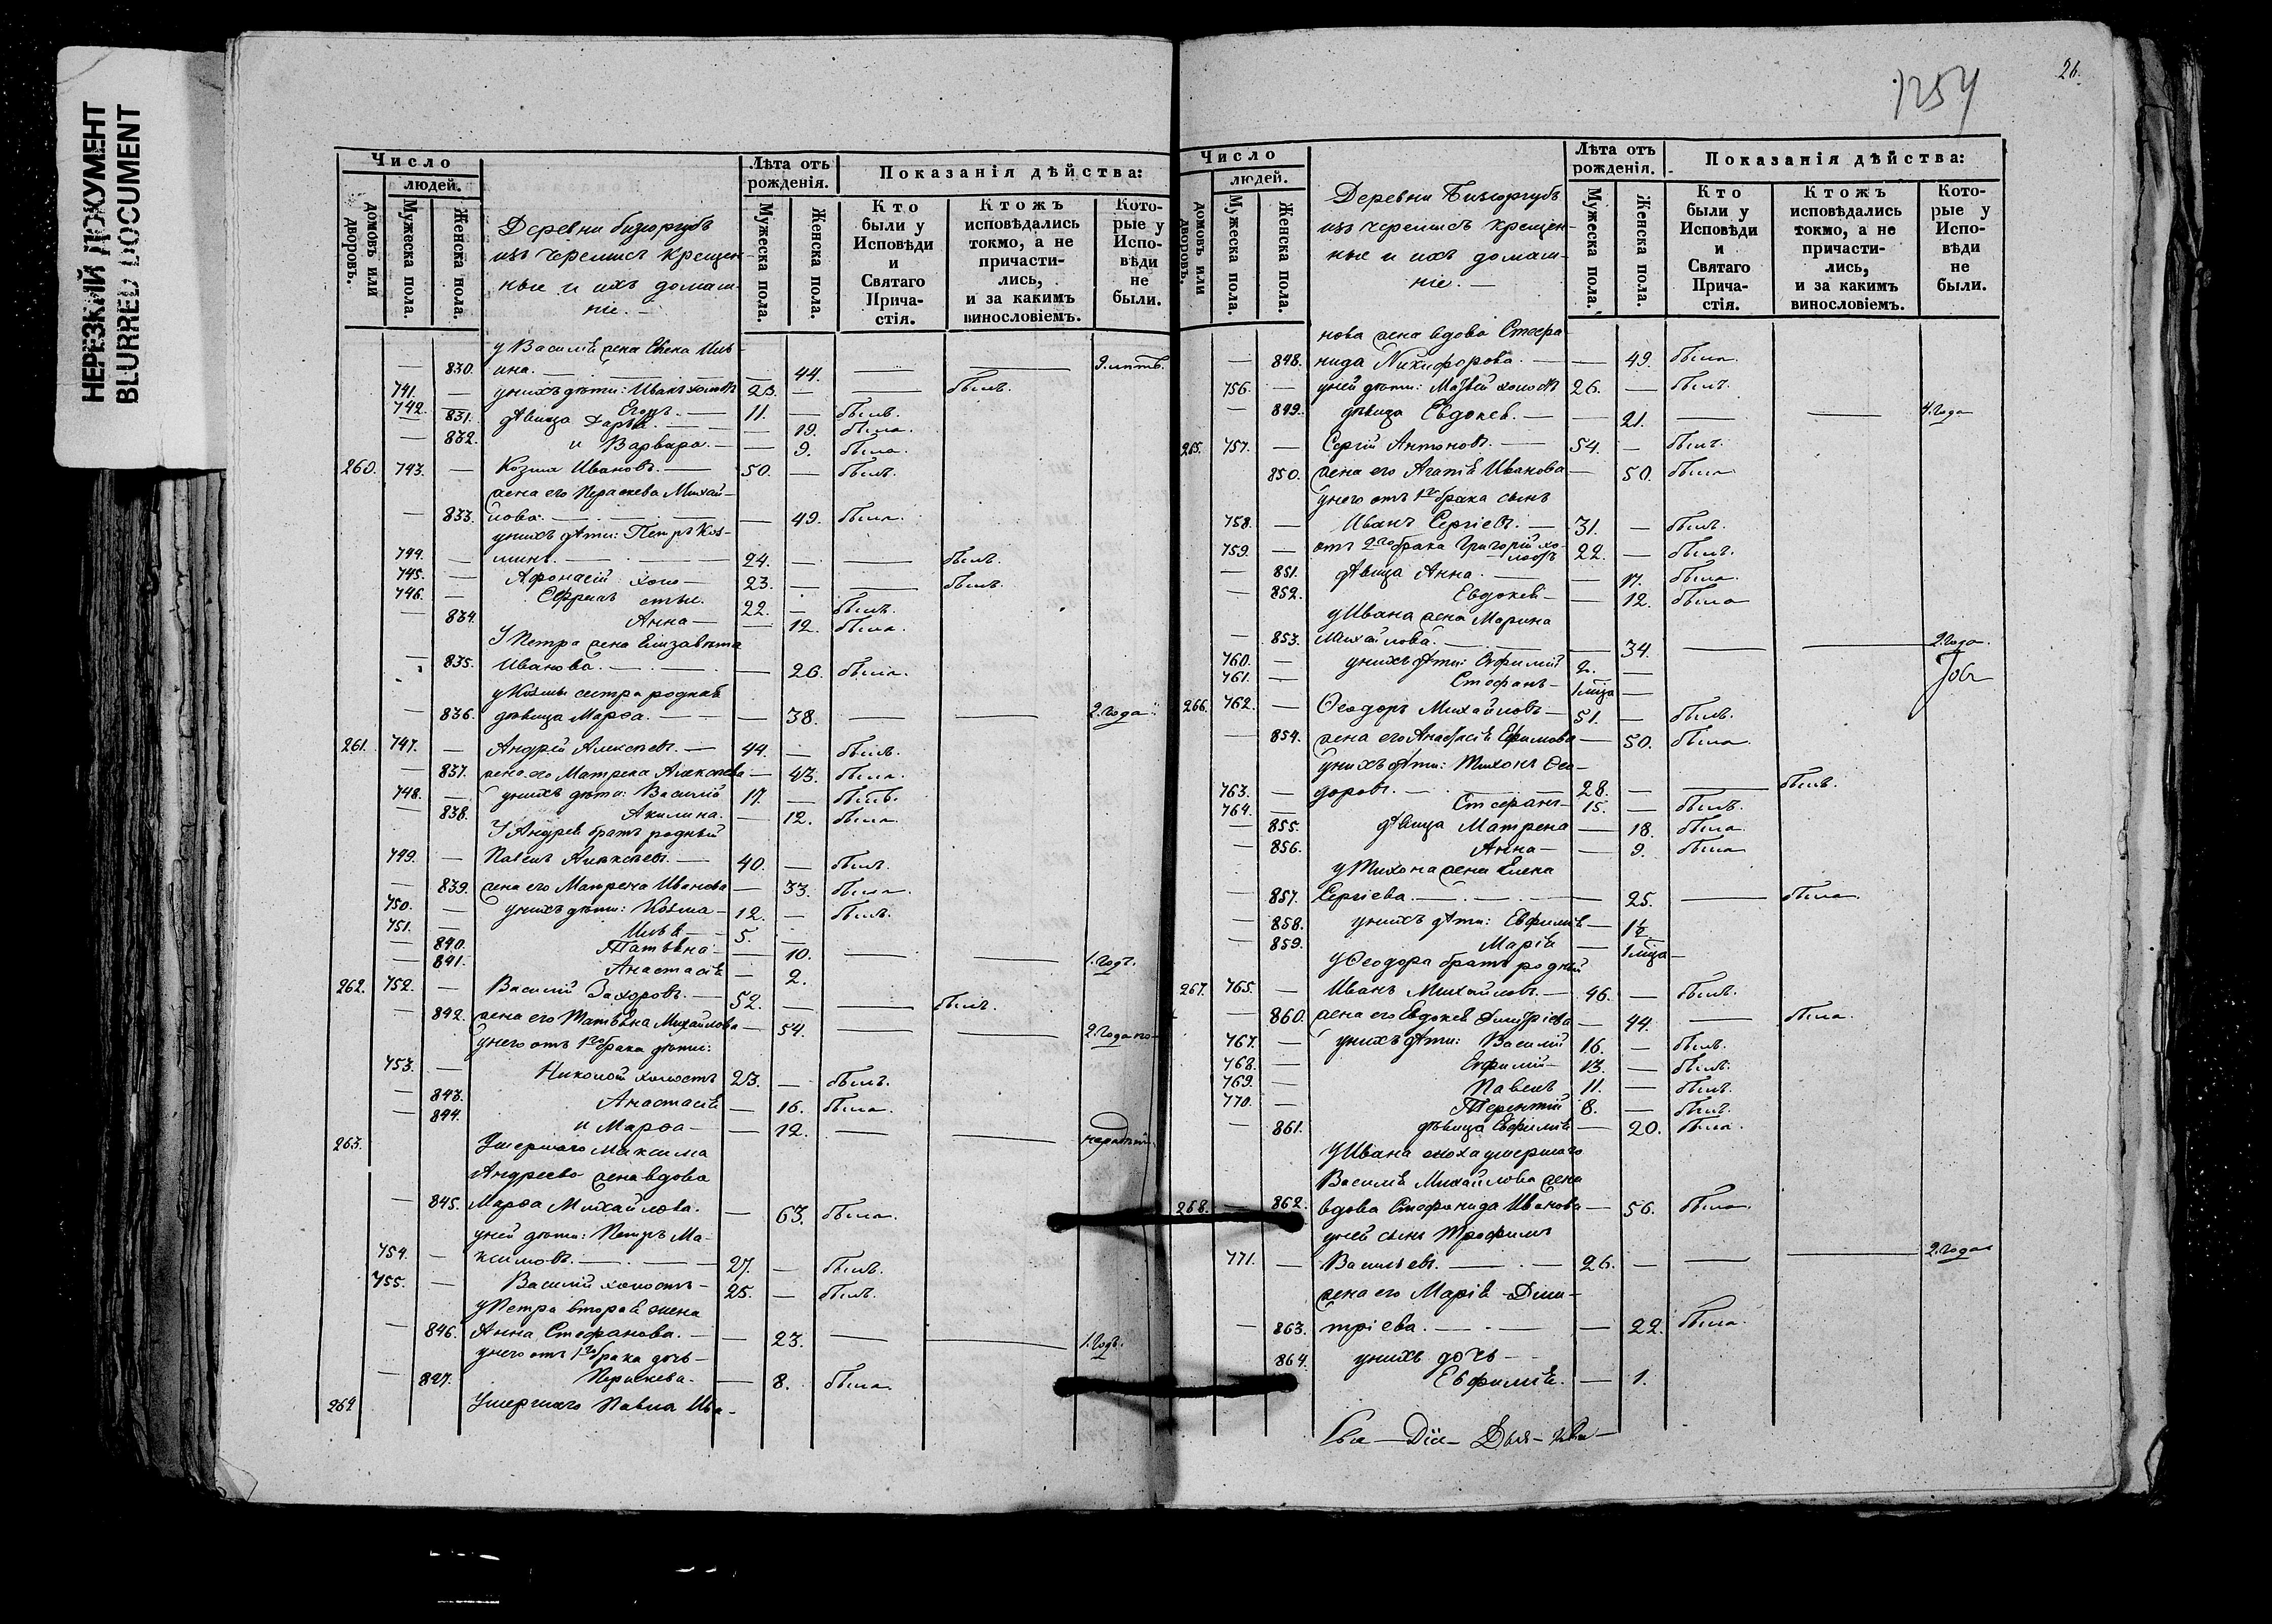 НЕРЕЗКИЙ ДОКУМЕНТ
BLURRED DOCUMENT
Число
людей.
домовъ или дворовъ.
Мужеска пола.
Женска пола.
Лѣта отъ рожденія.
Мужеска пола.
Женска пола.
Показанія дѣйства:
Кто были у Исповѣди и Святаго Прича-стія.
Ктожъ исповѣдались токмо, а не причасти-лись, и за какимъ винословіемъ.
Кото-рые у Испо-вѣди не были.
Деревни
изъ черемисъ крещен-
ные и ихъ домаш-
ніе. —
у Василія жена Елена Иль-
830. ина. — 44. — —
741. — у нихъ дѣти: Иванъ холостъ 23. — былъ.
742. — Егоръ. — 11. — былъ.
— 831. дѣвица Дарья — 19. была.
— 832. и Варвара. — 9. была.
260. 743. — Козма Ивановъ. — 50. — былъ.
жена его Параскева Михай-
— 833. лова. — 49. была.
у нихъ дѣти: Петръ Коз-
744. — минъ. — 24. — — былъ.
745. — Афонасій холо- 23. — — былъ.
746. — Ефремъ стые. 22. — былъ.
— 834. Анна — 12. была.
У Петра жена Елизавета
— 835. Иванова. — 26. была.
у Козмы сестра родная
— 836. дѣвица Марѳа. — 38. — — 2. года.
261. 747. — Андрей Алексѣевъ. — 44. — былъ.
— 837. жена его Матрена Алексѣева — 43. была.
748. — у нихъ дѣти: Василій 17. — былъ.
— 838. Акилина. — 12. была.
У Андрея братъ родный
749. — Павелъ Алексѣевъ. — 40. — былъ.
— 839. жена его Матрена Иванова — 33. была.
750. — у нихъ дѣти: Козма — 12. — былъ.
751. — Илья — 5. —
— 840. Татьяна — 10. — — 1. годъ.
— 841. Анастасія — 2.
262. 752. — Василій Захаровъ. — 52. — — былъ.
— 842. жена его Татьяна Михайлова — 54. — — 2. года
у него отъ 1го брака дѣти:
753. — Николай холостъ 23. — былъ.
— 843. Анастасія — 16. была.
— 844. и Марѳа — 12. — —
263. Умершаго Максима
Андреева жена вдова
— 845. Марѳа Михайлова. — 63. была.
у ней дѣти: Петръ Ма-
754. — ксимовъ. — 27. — былъ.
755. — Василій холостъ — 25. — былъ.
у Петра вторая жена
— 846. Анна Стефанова. — 23. — — 1. годъ.
у него отъ 1го брака дочь —
— 847. Параскева. — 8. была.
264 Умершаго Павла Ива-
1254
26.
Число
людей.
домовъ или дворовъ.
Мужеска пола.
Женска пола.
Лѣта отъ рожденія.
Мужеска пола.
Женска пола.
Показанія дѣйства:
Кто были у Исповѣди и Святаго Прича-стія.
Ктожъ исповѣдались токмо, а не причасти-лись, и за какимъ винословіемъ.
Кото-рые у Испо-вѣди не были.
Деревни
изъ черемисъ крещен-
ные и ихъ домаш-
ніе. —
нова жена вдова Стефа-
— 848. нида Никифорова. — 49. была.
756. — у ней дѣти: Матвѣй холостъ 26. — былъ.
— 849. дѣвица Евдокія. — 21. — — 4. года
265. 757. — Сергій Антоновъ. — 54. — былъ.
850. жена его Агапія Иванова — 50. была
у него отъ 1го брака сынъ
758. — Иванъ Сергіевъ. — 31. — былъ.
759. — отъ 2го брака Григорій хо-лостъ 22. — былъ.
— 851. дѣвица Анна. — 17. была.
— 852. Евдокія — 12. была
у Ивана жена Марина
— 853. Михайлова. — 34. — — 2. года.
760. — у нихъ дѣти: Евфимій 2. —
761. — Стефанъ — 1 мѣца —
266. 762. — Ѳеодоръ Михайловъ — 51. — былъ.
— 854. жена его Анастасія Ефимова — 50. была.
у нихъ дѣти: Тихонъ Ѳео-
763. — доровъ. — 28. — — былъ.
764. — Стефанъ — 15. — былъ.
— 855. дѣвица Матрена — 18. была.
— 856. Анна — 9. была
у Тихона жена Елена
— 857. Сергіева. — 25. — была
— 858. у нихъ дѣти: Евфимія — 1½
— 859. Марія — 1 мѣца —
у Ѳеодора братъ родный
267. 765. — Иванъ Михайловъ. — 46. — былъ.
— 860. жена его Евдокія Димитріева — 44. — была.
767. — у нихъ дѣти: Василій 16. — былъ.
768. — Ефимій — 13. — былъ.
769. — Павелъ 11. — былъ.
770. — Терентій 8. — былъ.
— 861. дѣвица Евфимія — 20. была.
У Ивана сноха умершаго
Василія Михайлова жена
268. — 862. вдова Стефанида Иванова — 56. была.
у ней сынъ Трофимъ
771. — Васильевъ. — 26. — — — 2. года
жена его Марія Дими-
— 863. тріева. — 22. была.
864. у нихъ дочь —
Евфимія. — 1.